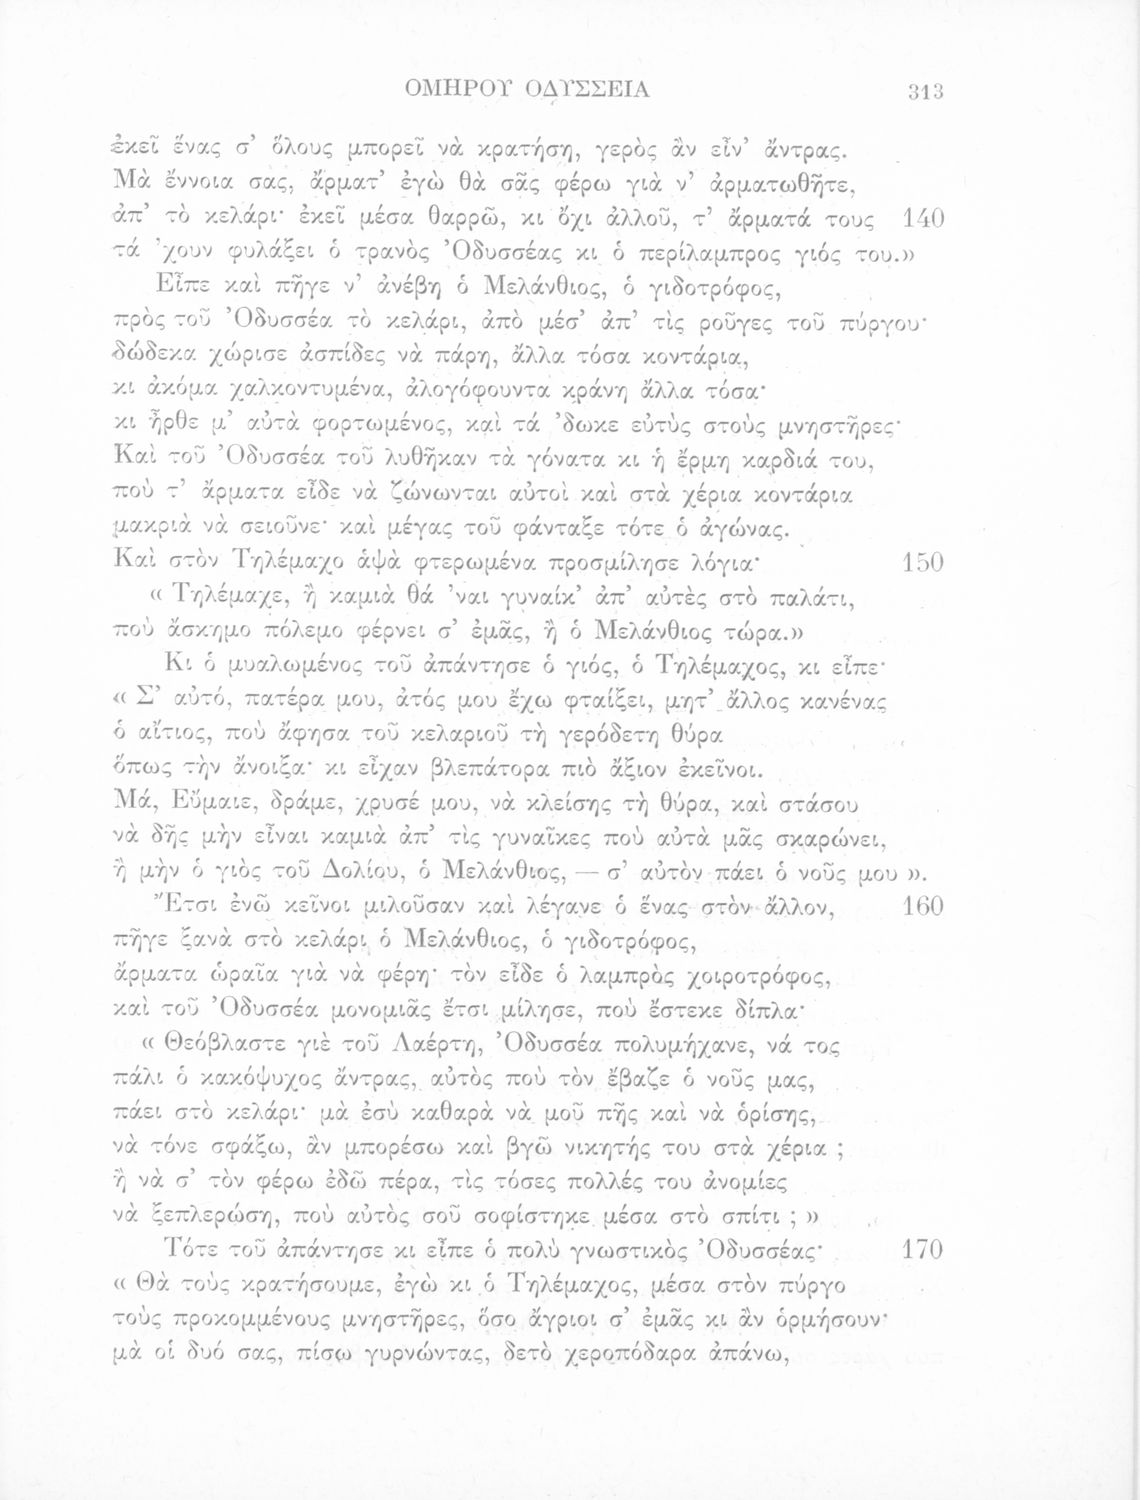 ΟΜΗΡΟΥ ΟΔΥΣΣΕΙΑ 313
ἐκεῖ ἕνας σ’ ὅλους μπορεῖ νὰ κρατήση, γερὸς ἂν εἶν’ ἄντρας.
Μὰ ἔννοια σας, ἄρματ’ ἐγὼ θὰ σᾶς φέρω γιὰ ν’ ἀρματωθῆτε,
ἀπ’ τὸ κελάρι· ἐκεῖ μέσα θαρρῶ, κι ὄχι ἀλλοῦ, τ’ ἄρματά τους 140
τά ’χουν φυλάξει ὁ τρανὸς Ὀδυσσέας κι ὁ περίλαμπρος γιός του.»
Εἶπε καὶ πῆγε ν’ ἀνέβη ὁ Μελάνθιος, ὁ γιδοτρόφος,
πρὸς τοῦ Ὀδυσσέα τὸ κελάρι, ἀπὸ μέσ’ ἀπ’ τὶς ροῦγες τοῦ πύργου·
δώδεκα χώρισε ἀσπίδες νὰ πάρη, ἄλλα τόσα κοντάρια,
κι ἀκόμα χαλκοντυμένα, ἀλογόφουντα κράνη ἄλλα τόσα·
κι ἦρθε μ’ αὐτὰ φορτωμένος, καὶ τά ’δωκε εὐτὺς στοὺς μνηστῆρες·
Καὶ τοῦ Ὀδυσσέα τοῦ λυθῆκαν τὰ γόνατα κι ἡ ἔρμη καρδιά του,
ποὺ τ’ ἄρματα εἶδε νὰ ζώνωνται αὐτοὶ καὶ στὰ χέρια κοντάρια
μακριὰ νὰ σειοῦνε· καὶ μέγας τοῦ φάνταξε τότε ὁ ἀγώνας.
Καὶ στὸν Τηλέμαχο ἁψὰ φτερωμένα προσμίλησε λόγια· 150
« Τηλέμαχε, ἢ καμιὰ θά ’ναι γυναίκ’ ἀπ’ αὐτὲς στὸ παλάτι,
ποὺ ἄσκημο πόλεμο φέρνει σ’ ἐμᾶς, ἢ ὁ Μελάνθιος τώρα.»
Κι ὁ μυαλωμένος τοῦ ἀπάντησε ὁ γιός, ὁ Τηλέμαχος, κι εἶπε·
« Σ’ αὐτό, πατέρα μου, ἀτός μου ἔχω φταίξει, μητ’ ἄλλος κανένας
ὁ αἴτιος, ποὺ ἄφησα τοῦ κελαριοῦ τὴ γερόδετη θύρα
ὅπως τὴν ἄνοιξα· κι εἶχαν βλεπάτορα πιὸ ἄξιον ἐκεῖνοι.
Μά, Εὔμαιε, δράμε, χρυσέ μου, νὰ κλείσης τὴ θύρα, καὶ στάσου
νὰ δῆς μὴν εἶναι καμιὰ ἀπ’ τὶς γυναῖκες ποὺ αὐτὰ μᾶς σκαρώνει,
ἢ μὴν ὁ γιὸς τοῦ Δολίου, ὁ Μελάνθιος, — σ’ αὐτὸν πάει ὁ νοῦς μου ».
Ἔτσι ἐνῶ κεῖνοι μιλοῦσαν καὶ λέγανε ὁ ἕνας στὸν ἄλλον, 160
πῆγε ξανὰ στὸ κελάρι ὁ Μελάνθιος, ὁ γιδοτρόφος,
ἄρματα ὡραῖα γιὰ νὰ φέρη· τὸν εἶδε ὁ λαμπρὸς χοιροτρόφος,
καὶ τοῦ Ὀδυσσέα μονομιᾶς ἔτσι μίλησε, ποὺ ἔστεκε δίπλα·
« Θεόβλαστε γιὲ τοῦ Λαέρτη, Ὀδυσσέα πολυμήχανε, νά τος
πάλι ὁ κακόψυχος ἄντρας, αὐτὸς ποὺ τὸν ἔβαζε ὁ νοῦς μας,
πάει στὸ κελάρι· μὰ ἐσὺ καθαρὰ νὰ μοῦ πῆς καὶ νὰ ὁρίσης,
νὰ τόνε σφάξω, ἂν μπορέσω καὶ βγῶ νικητής του στὰ χέρια ;
ἢ νὰ σ’ τὸν φέρω ἐδῶ πέρα, τὶς τόσες πολλές του ἀνομίες
νὰ ξεπλερώση, ποὺ αὐτὸς σοῦ σοφίστηκε μέσα στὸ σπίτι ; »
Τότε τοῦ ἀπάντησε κι εἶπε ὁ πολὺ γνωστικὸς Ὀδυσσέας· 170
« Θὰ τοὺς κρατήσουμε, ἐγὼ κι ὁ Τηλέμαχος, μέσα στὸν πύργο
τοὺς προκομμένους μνηστῆρες, ὅσο ἄγριοι σ’ ἐμᾶς κι ἂν ὁρμήσουν·
μὰ οἱ δυό σας, πίσω γυρνώντας, δετὸ χεροπόδαρα ἀπάνω,